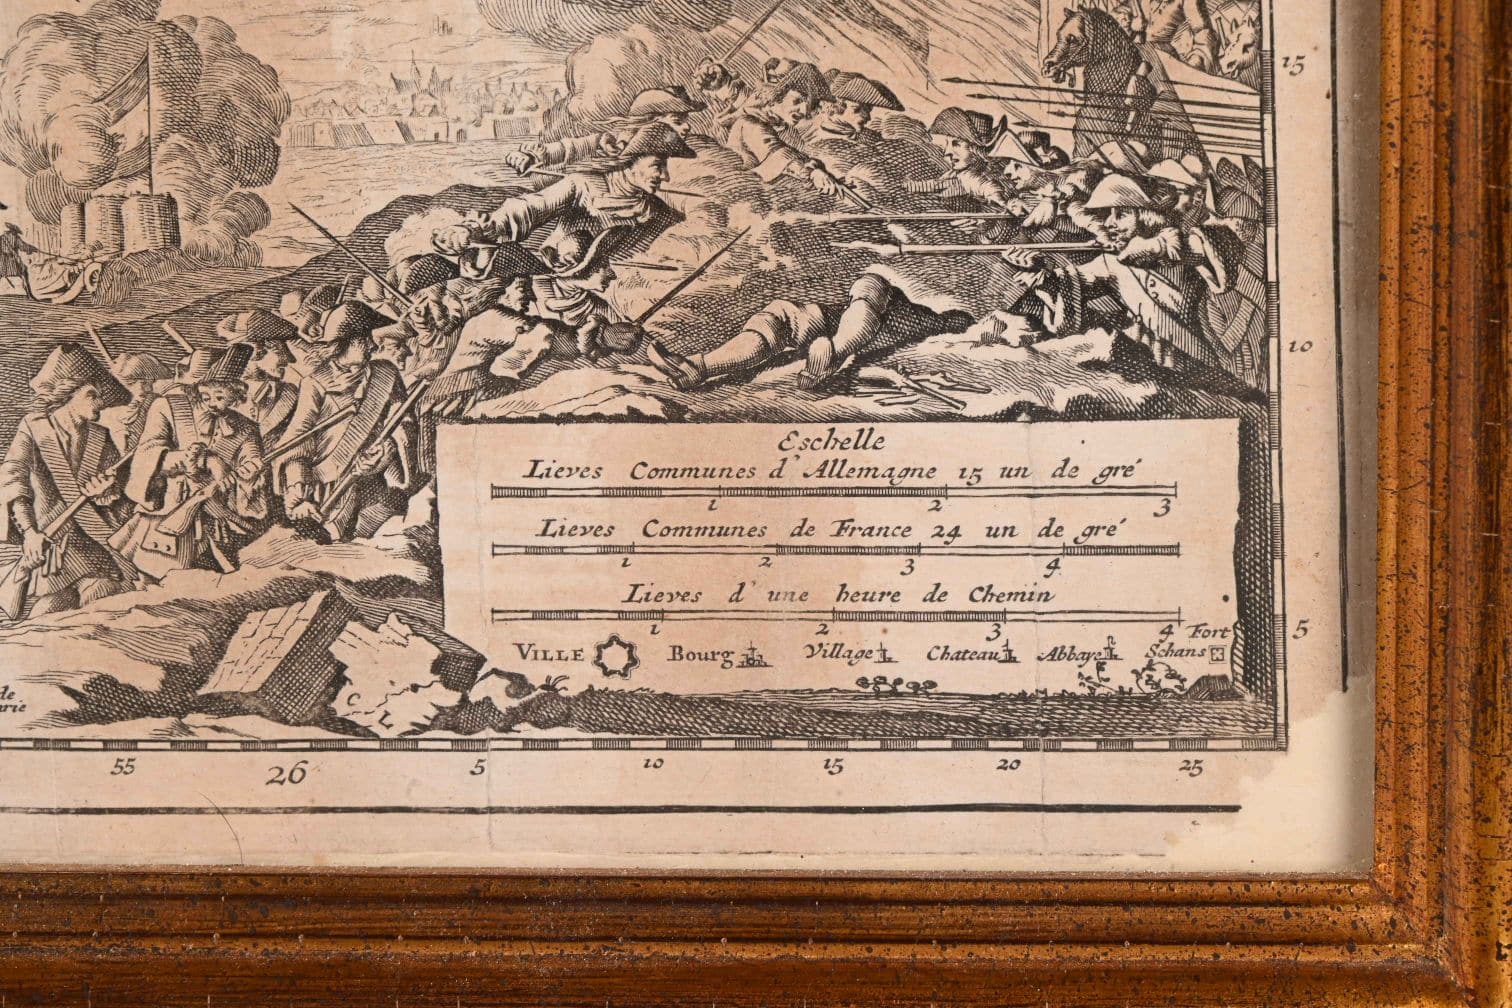 Eschelle
Lieves Communes d'Allemagne 15 un de gré
1 2 3
Lieves Communes de France 24 un de gré
1 2 3 4
Lieves d'une heure de Chemin
1 2 3 4
VILLE Bourg Village Chateau Abbaye Fort Schans
C L
55 26 5 10 15 20 25
15
10
5